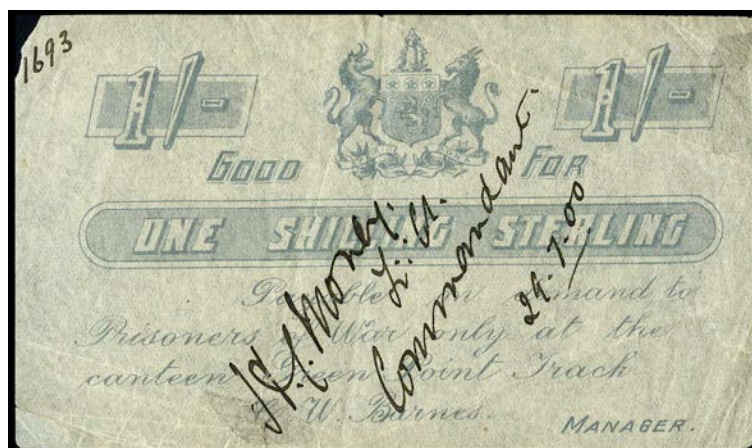 1693
1/- 1/-
GOOD FOR
ONE SHILLING STERLING
Payable on demand to
Prisoners of War only at the
canteen Green Point Track
C. W. Barnes.
MANAGER.
Money.
Lt. Col.
Commandant.
29.7.00